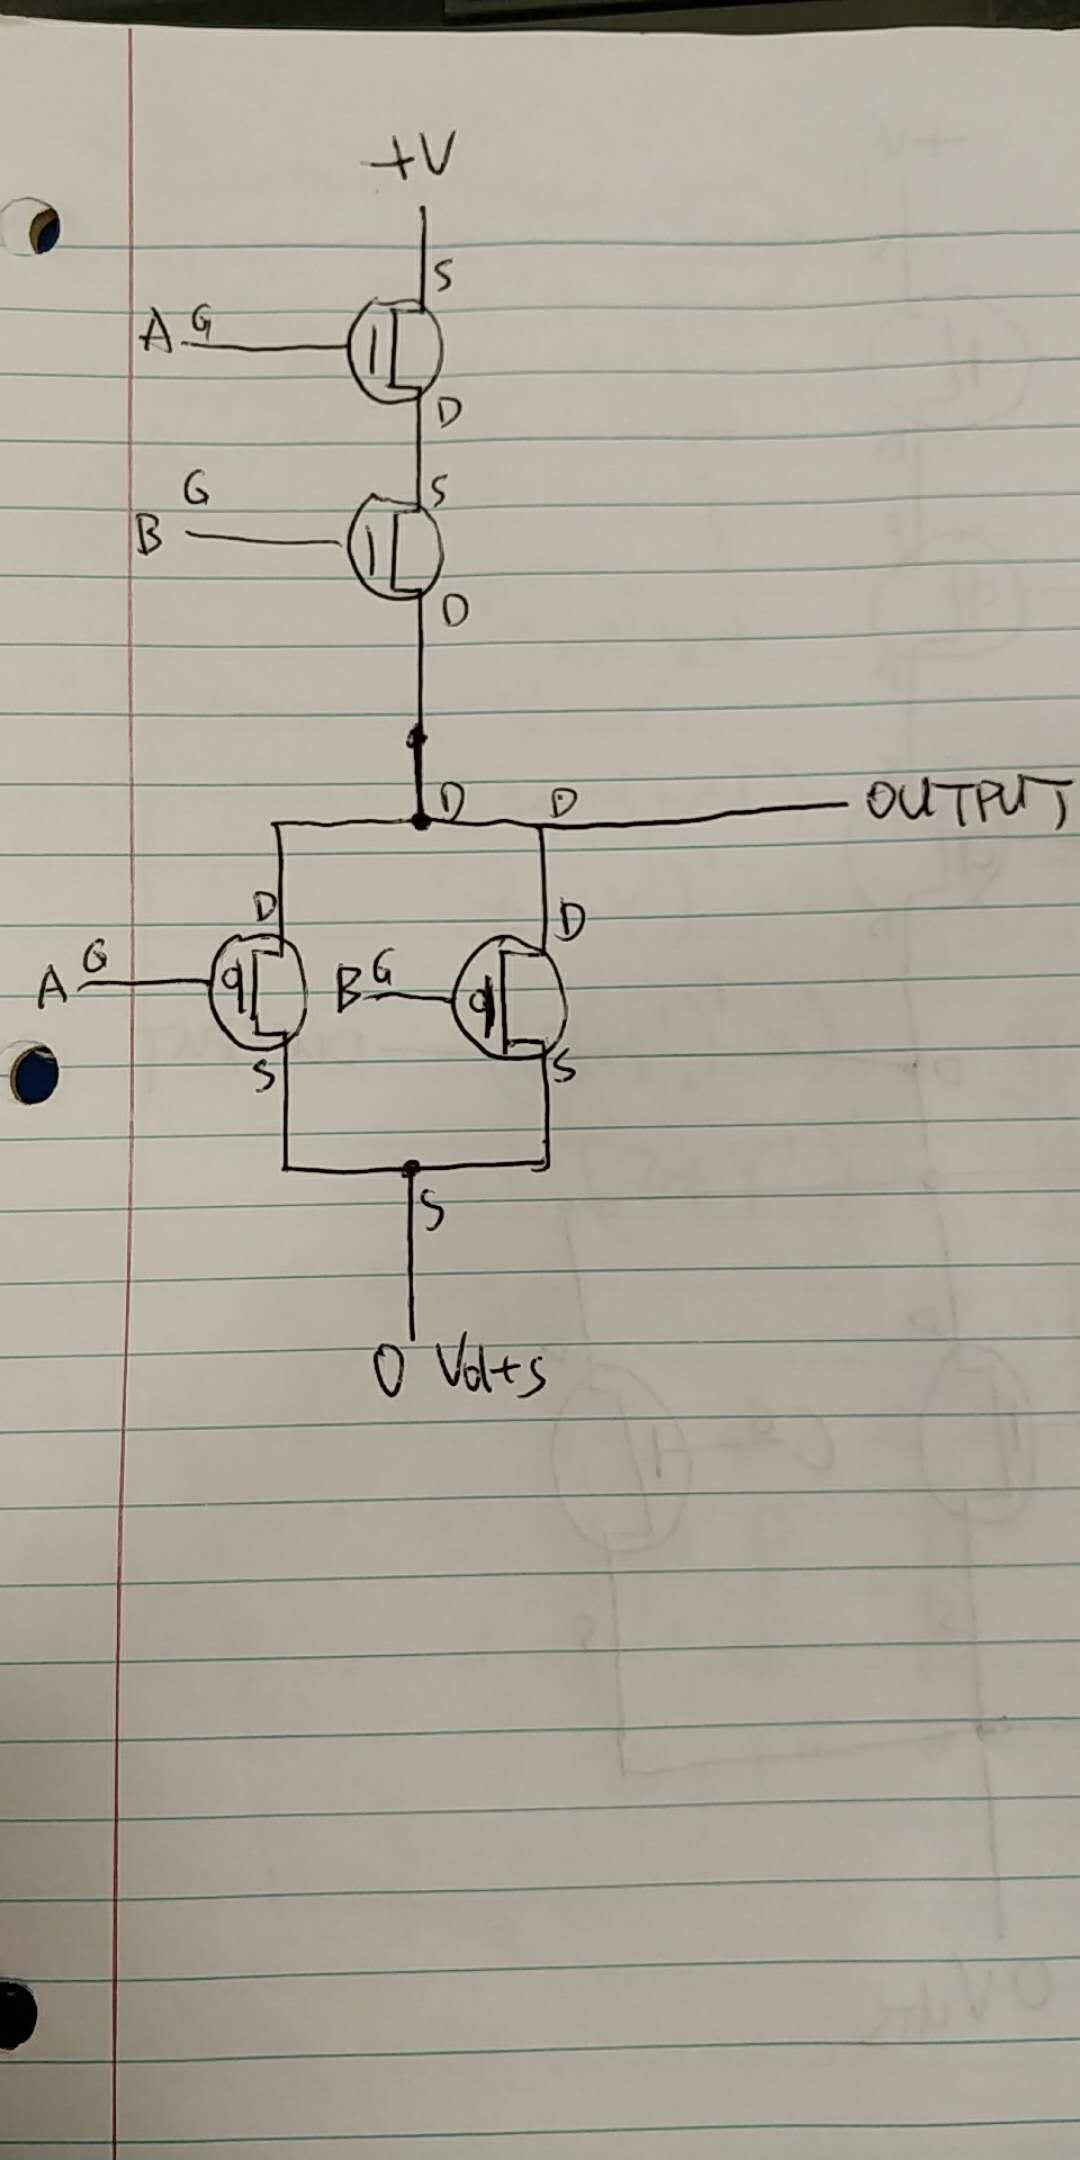 +V
S
A G
D
G
S
B
D
D D
OUTPUT
D
D
A G
B G
S
S
S
0 Volts